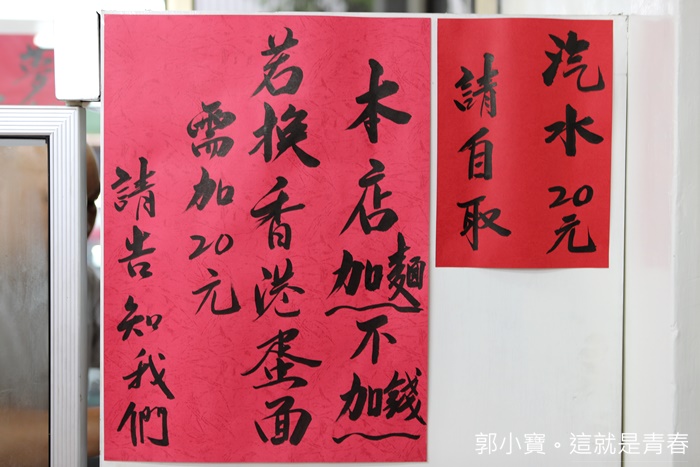 本店加麵不加錢
若換香港蛋面
需加20元
請告知我們
汽水20元
請自取
郭小寶。這就是青春